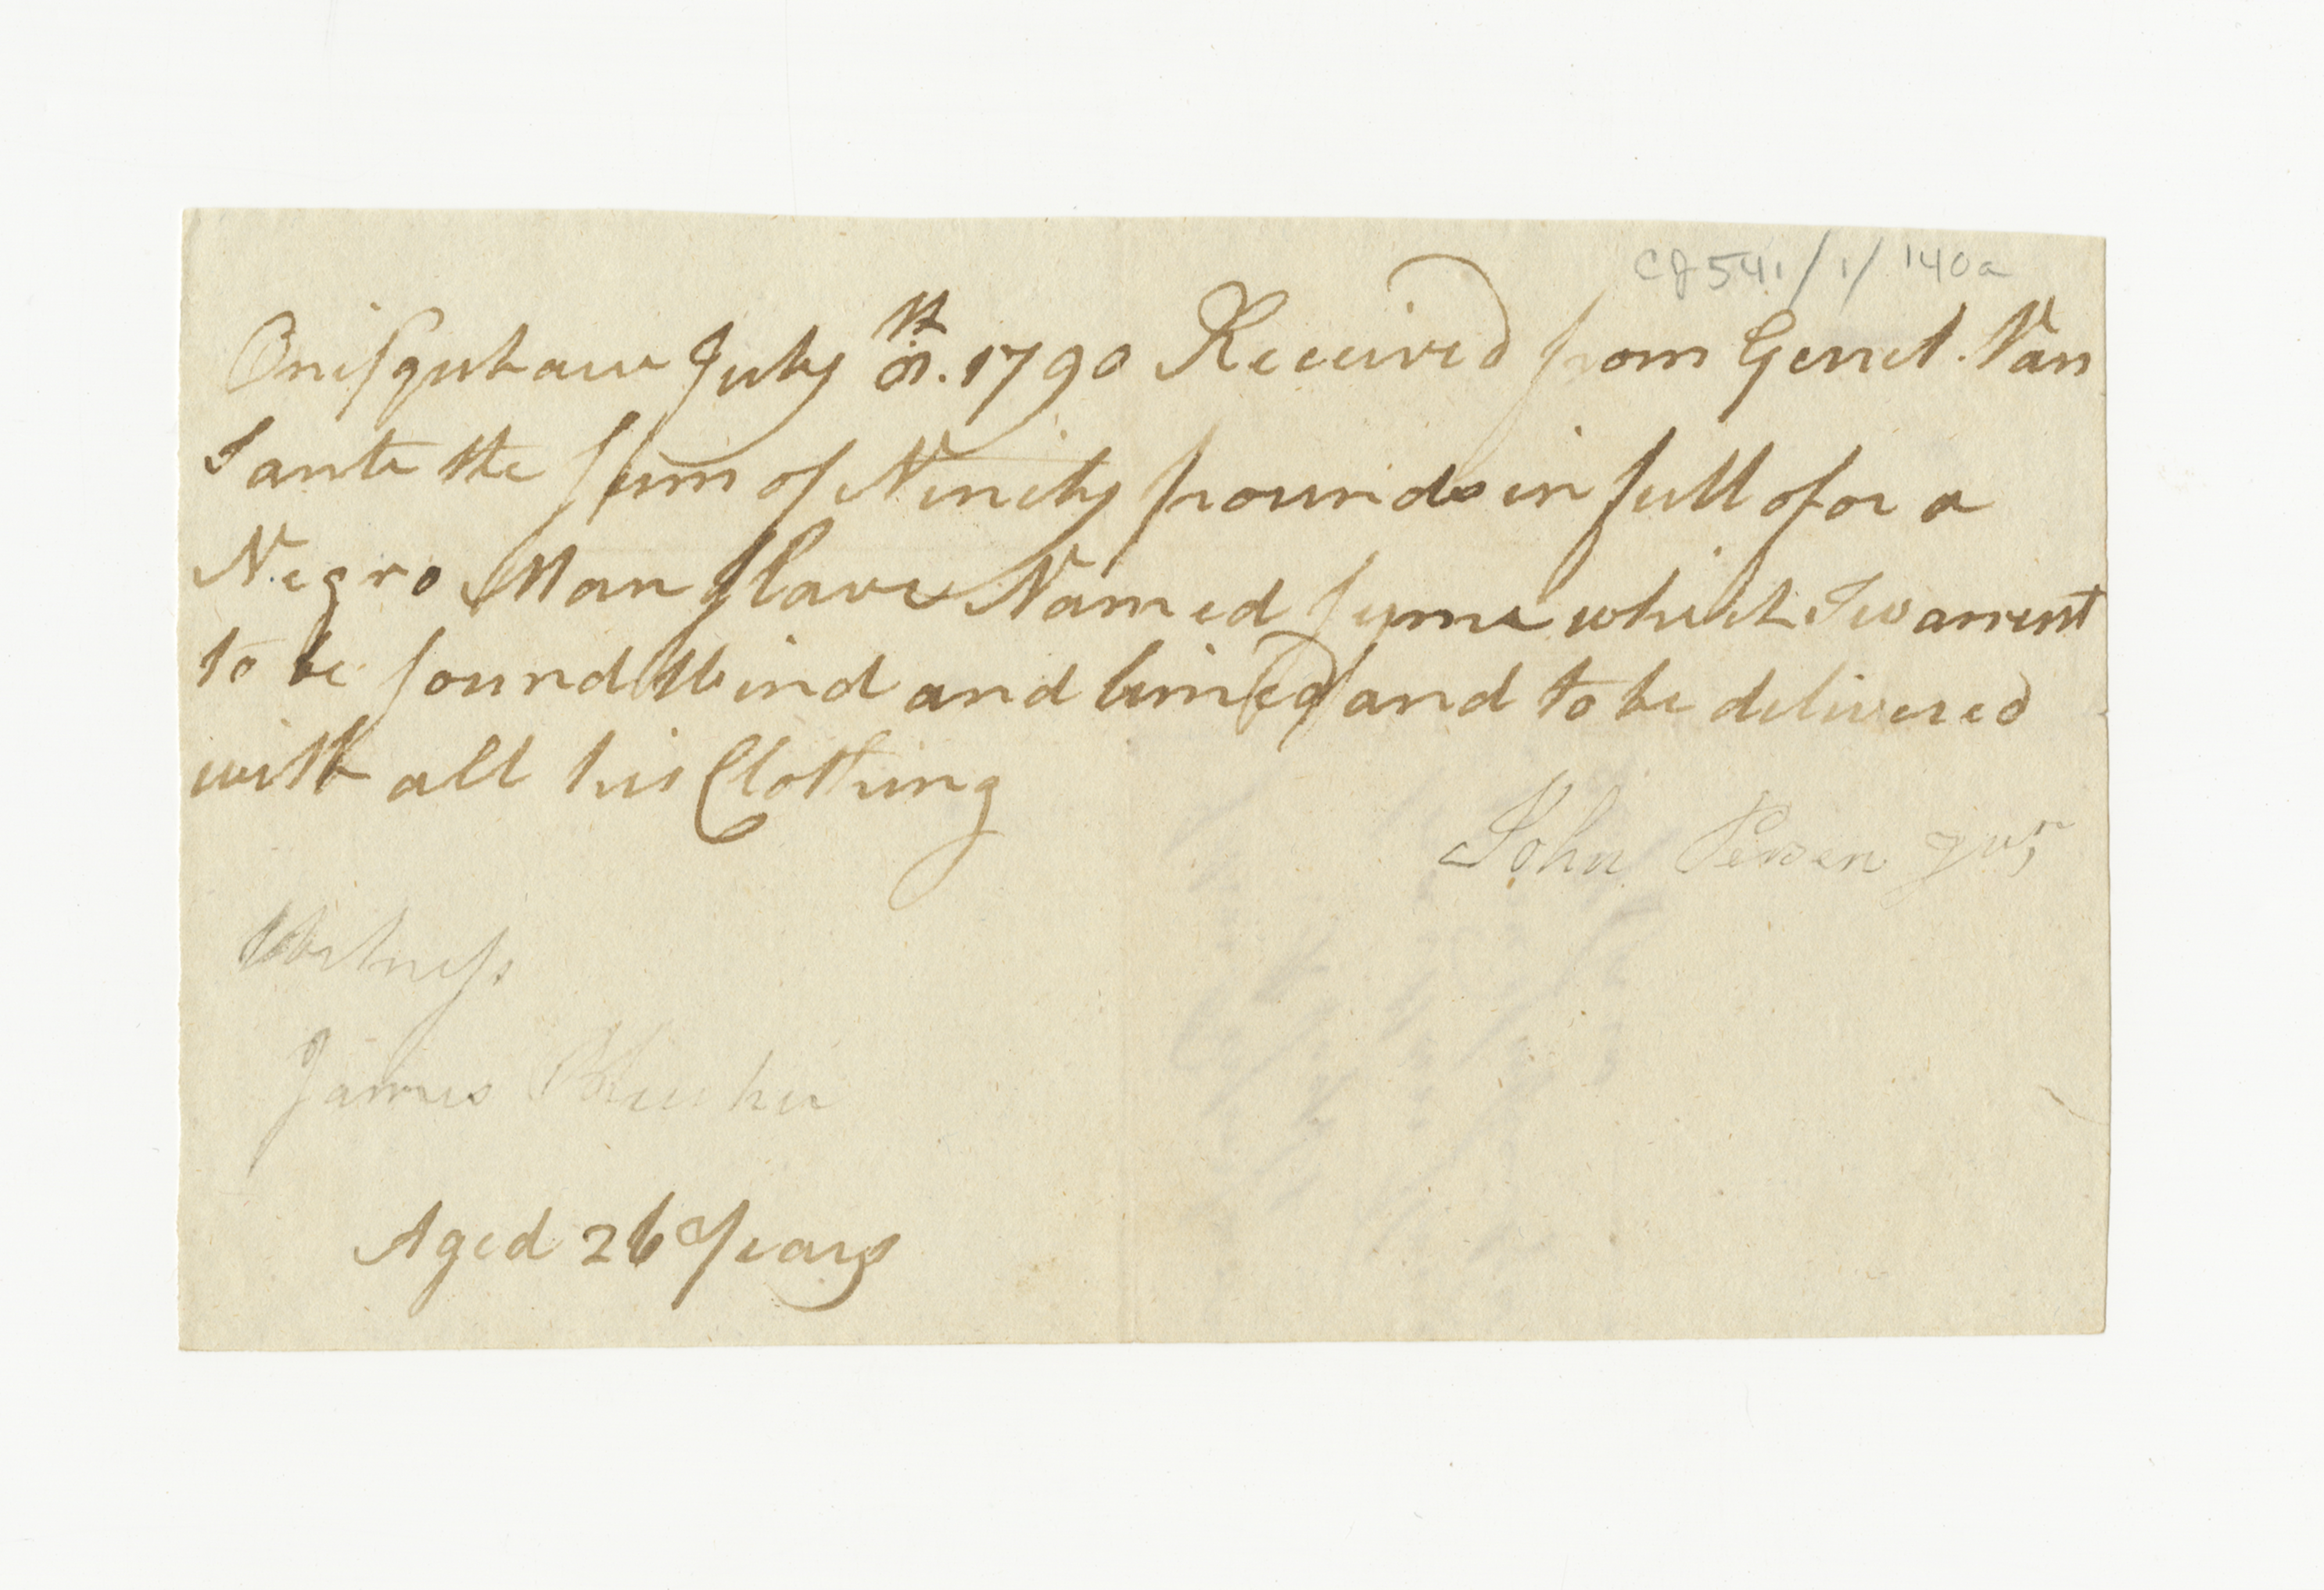 CJ541/1/140a
Onisquthaw July 1st. 1790 Received from Gerret. Van
Sante the sum of Ninety pounds in full for a
Negro Man slave Named syme which I warrent
to be sound Wind and limed and to be delivered
with all his Clothing
John Persen Jur
Witness
James
Aged 26 Years